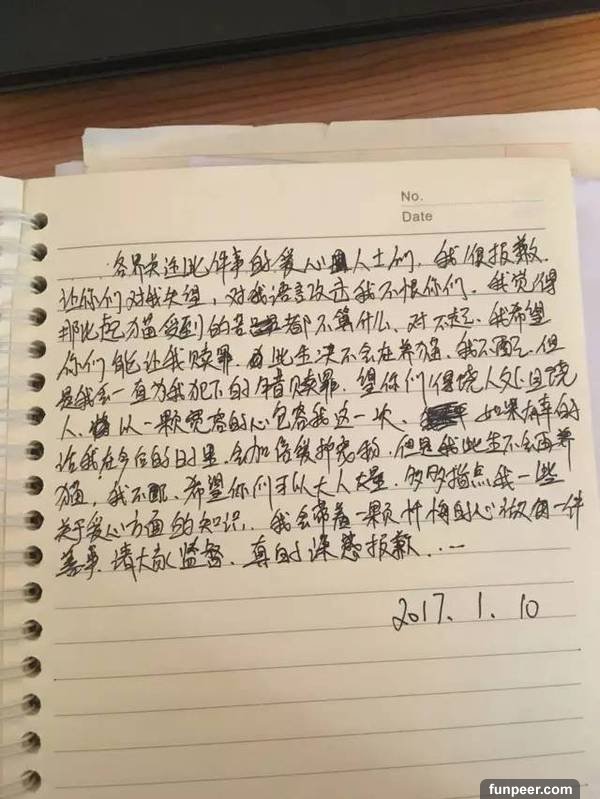 No.
Date
各界关注此件事的爱心人士们，我很报歉.
让你们对我失望，对我语言攻击我不恨你们. 我觉得
那比起猫受到的苦都不算什么、对不起. 我希望
你们能让我赎罪. 此生决不会在养猫. 我不配. 但
是我会一直为我犯下的错赎罪. 望你们得饶人处且饶
人. 以一颗宽容的心包容我这一次、如果有幸的
话我在今后的时里. 会加倍爱护宠物. 但是我此生不会再养
猫，我不配. 希望你们可以大人大量. 多多指点我一些
关于爱心方面的知识. 我会带着一颗忏悔的心做每一件
善事. 请大家监督. 真的深感报歉. . 一
2017. 1. 10
funpeer.com